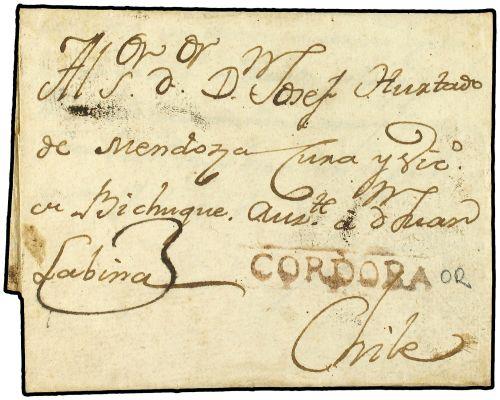 Al S.or d.or D.n Josef Hurtado
de Mendoza Cura y Vic.o
de Bichuque. Aus.te a d.n Juan
Labina 3
CORDOBA OR
Chile